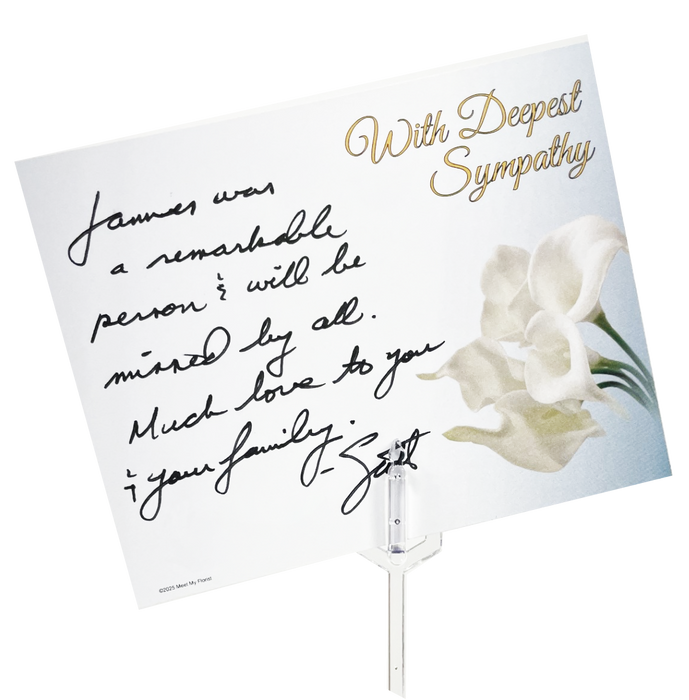 With Deepest
Sympathy
James was
a remarkable
person & will be
missed by all.
Much love to you
& your family.
©2025 Meet My Florist